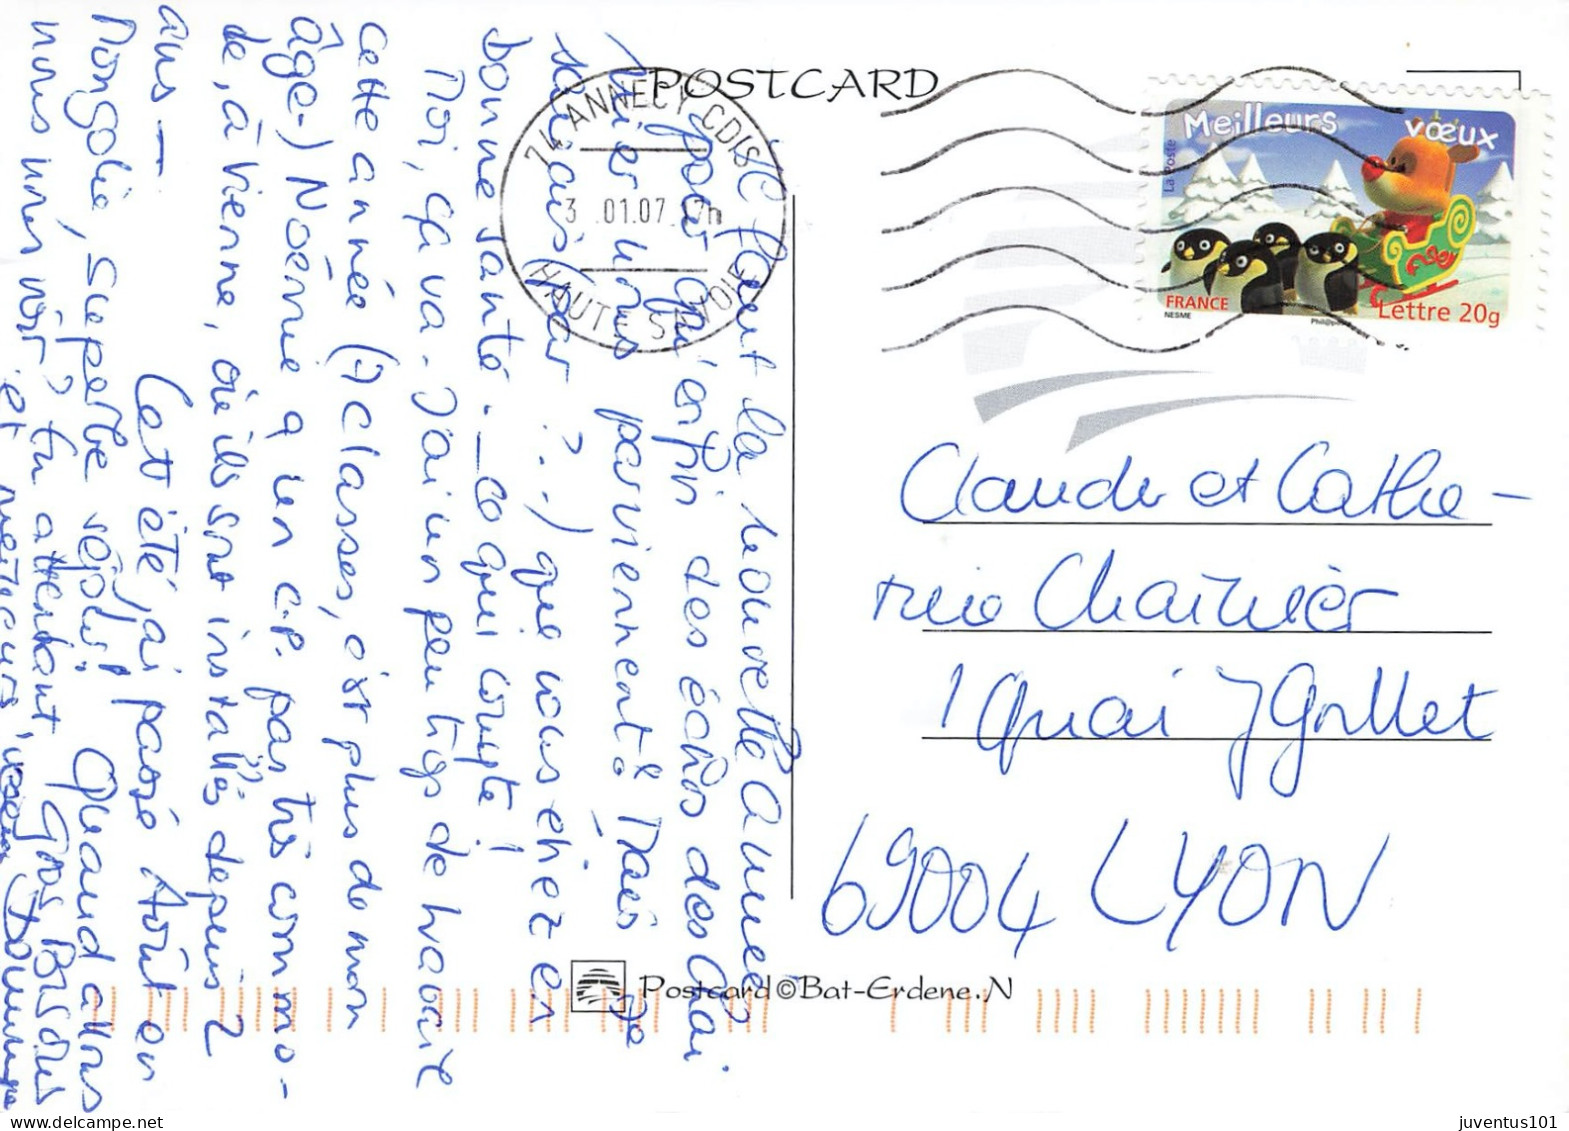 POSTCARD
Il faut la nouvelle année
pour qu'enfin des échos des Chai
nier nous parviennent ! Mais je
savais (par ?..) que vous étiez en
bonne santé. _ ce qui compte !
Moi, ça va. J'ai un peu trop de travail
cette année (7 classes, c'est plus de mon
âge.) Noémie a un c.p. pas très commo-
de, à Vienne, où ils sont installés depuis 2
ans —
Cet été j'ai passé Août en
Mongolie, superbe séjour ! Quand allons
nous nous voir ? En attendant, gros Bisous
et meilleurs voeux Dominique
74 ANNECY CDIS
3 .01.07 17h
HAUTE SAVOIE
Meilleurs vœux
La Poste
FRANCE
Lettre 20g
NESME
Claude et Cathe-
rine Chainier
1 Quai J Gillet
69004 LYON
Postcard ©Bat-Erdene.N
juventus101